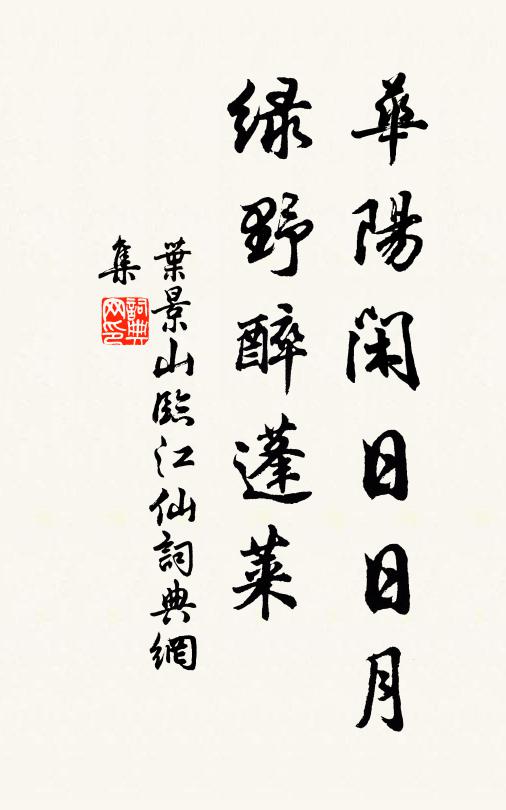 華陽閑日日月
緑野醉蓬萊
葉景山臨江仙詞典網
集
詞典网印